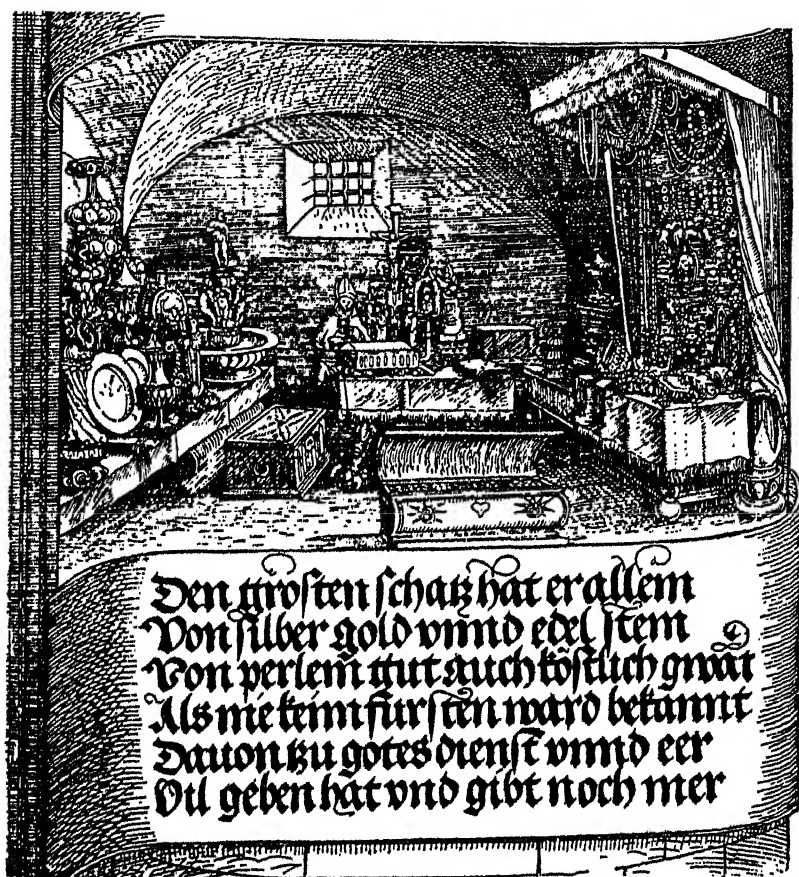 Den grosten schatz hat er allein
Von silber gold vnnd edel stein
Von perlein gut auch köstlich gwāt
Als nie keim fürsten ward bekannt
Dauon tzu gotes dienst vnnd eer
Vil geben hat vnd gibt noch mer